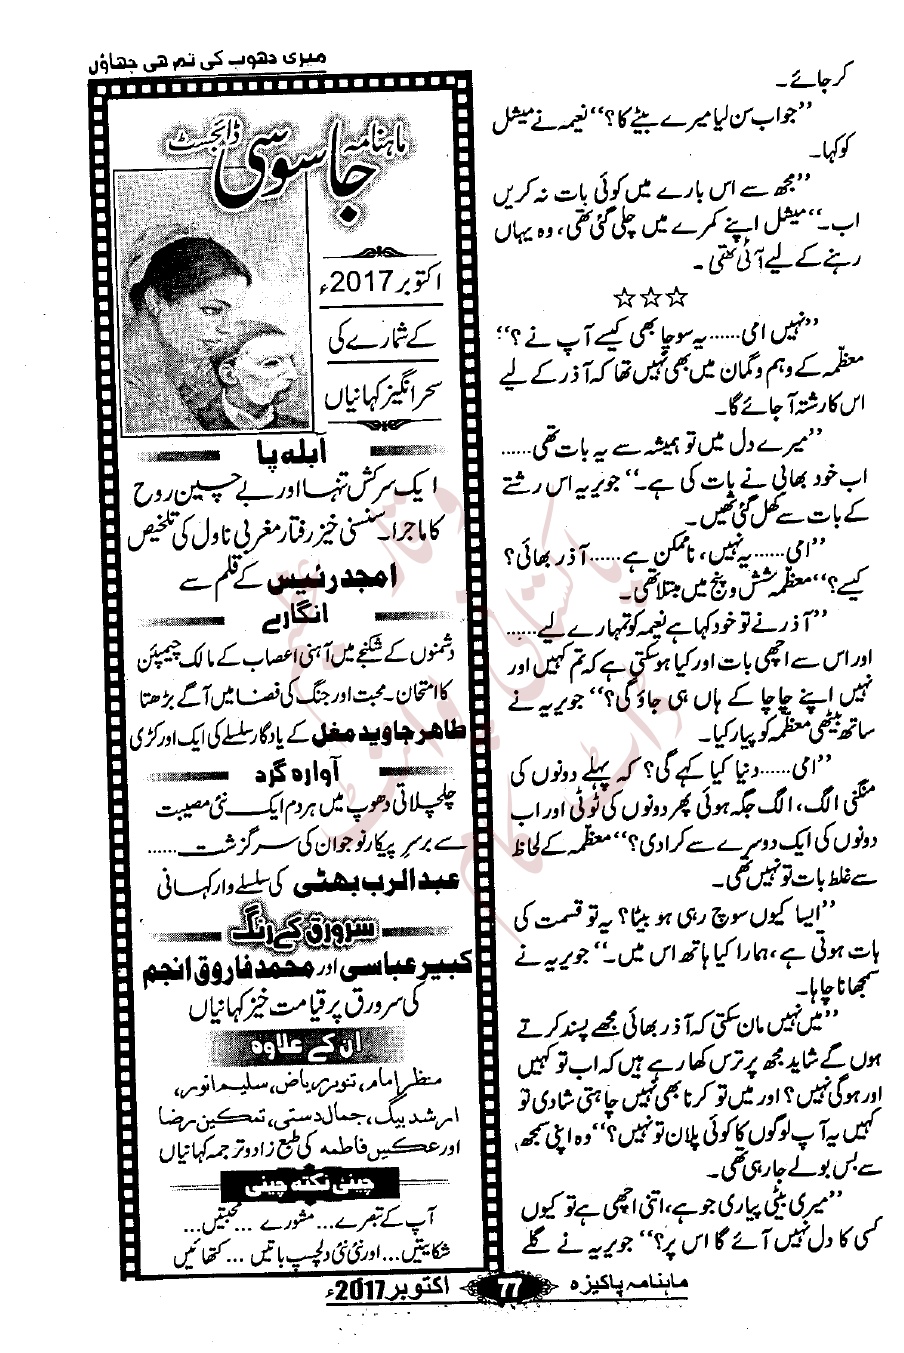 میری دھوپ کی تم ھی چھاؤں
کر جائے۔
’’جواب سن لیا میرے بیٹے کا؟‘‘ نعیمہ نے میشل
کو کہا۔
’’مجھ سے اس بارے میں کوئی بات نہ کریں
اب۔‘‘ میشل اپنے کمرے میں چلی گئی تھی، وہ یہاں
رہنے کے لیے آئی تھی۔
☆☆☆
’’نہیں امی...... یہ سوچا بھی کیسے آپ نے؟‘‘
معظمہ کے وہم و گمان میں بھی نہیں تھا کہ آذر کے لیے
اس کا رشتہ آ جائے گا۔
’’میرے دل میں تو ہمیشہ سے یہ بات تھی......
اب خود بھائی نے بات کی ہے۔‘‘ جویریہ اس رشتے
کے بات سے کھل گئی تھیں۔
’’امی...... یہ نہیں، ناممکن ہے...... آذر بھائی؟
کیسے؟‘‘ معظمہ شش و پنج میں مبتلا تھی۔
’’آذر نے تو خود کہا ہے نعیمہ کو تمہارے لیے......
اور اس سے اچھی بات اور کیا ہو سکتی ہے کہ تم کہیں اور
نہیں اپنے چاچا کے ہاں ہی جاؤ گی؟‘‘ جویریہ نے
ساتھ بیٹھی معظمہ کو پیار کیا۔
’’امی...... دنیا کیا کہے گی؟ کہ پہلے دونوں کی
منگنی الگ، الگ جگہ ہوئی پھر دونوں کی ٹوٹی اور اب
دونوں کی ایک دوسرے سے کرا دی؟‘‘ معظمہ کے لحاظ
سے غلط بات تو نہیں تھی۔
’’ایسا کیوں سوچ رہی ہو بیٹا؟ یہ تو قسمت کی
بات ہوتی ہے، ہمارا کیا ہاتھ اس میں۔‘‘ جویریہ نے
سمجھانا چاہا۔
’’میں نہیں مان سکتی کہ آذر بھائی مجھے پسند کرتے
ہوں گے شاید مجھ پر ترس کھا رہے ہیں کہ اب تو کہیں
اور ہو گی نہیں؟ اور میں تو کرنا بھی نہیں چاہتی شادی تو
کہیں یہ آپ لوگوں کا کوئی پلان تو نہیں؟‘‘ وہ اپنی سمجھ
سے بس بولے جا رہی تھی۔
’’میری بیٹی پیاری جو ہے، اتنی اچھی ہے تو کیوں
کسی کا دل نہیں آئے گا اس پر؟‘‘ جویریہ نے گلے
ماہنامہ جاسوسی ڈائجسٹ
اکتوبر 2017ء
کے شمارے کی
سحر انگیز کہانیاں
آبلہ پا
ایک سرکش تنہا اور بے چین روح
کا ماجرا۔ سنسنی خیز رفتار مغربی ناول کی تلخیص
امجد رئیس کے قلم سے
انگارے
دشمنوں کے شکنجے میں آہنی اعصاب کے مالک چیمپئن
کا امتحان۔ محبت اور جنگ کی فضا میں آگے بڑھتا
طاہر جاوید مغل کے یادگار سلسلے کی ایک اور کڑی
آوارہ گرد
چلچلاتی دھوپ میں ہر دم ایک نئی مصیبت
سے برسرِ پیکار نوجوان کی سرگزشت......
عبدالرب بھٹی کی سلسلے وار کہانی
سرورق کے رنگ
کبیر عباسی اور محمد فاروق انجم
کی سرورق پر قیامت خیز کہانیاں
ان کے علاوہ
منظر امام، تنویر ریاض، سلیم انور،
ارشد بیگ، جمال دستی، تمکین رضا
اور عکس فاطمہ کی طبع زاد و ترجمہ کہانیاں
چینی نکتہ چینی
آپ کے تبصرے... مشورے... محبتیں...
شکایتیں... اور نئی نئی دلچسپ باتیں... کتھائیں
ماہنامہ پاکیزہ 77 اکتوبر 2017ء